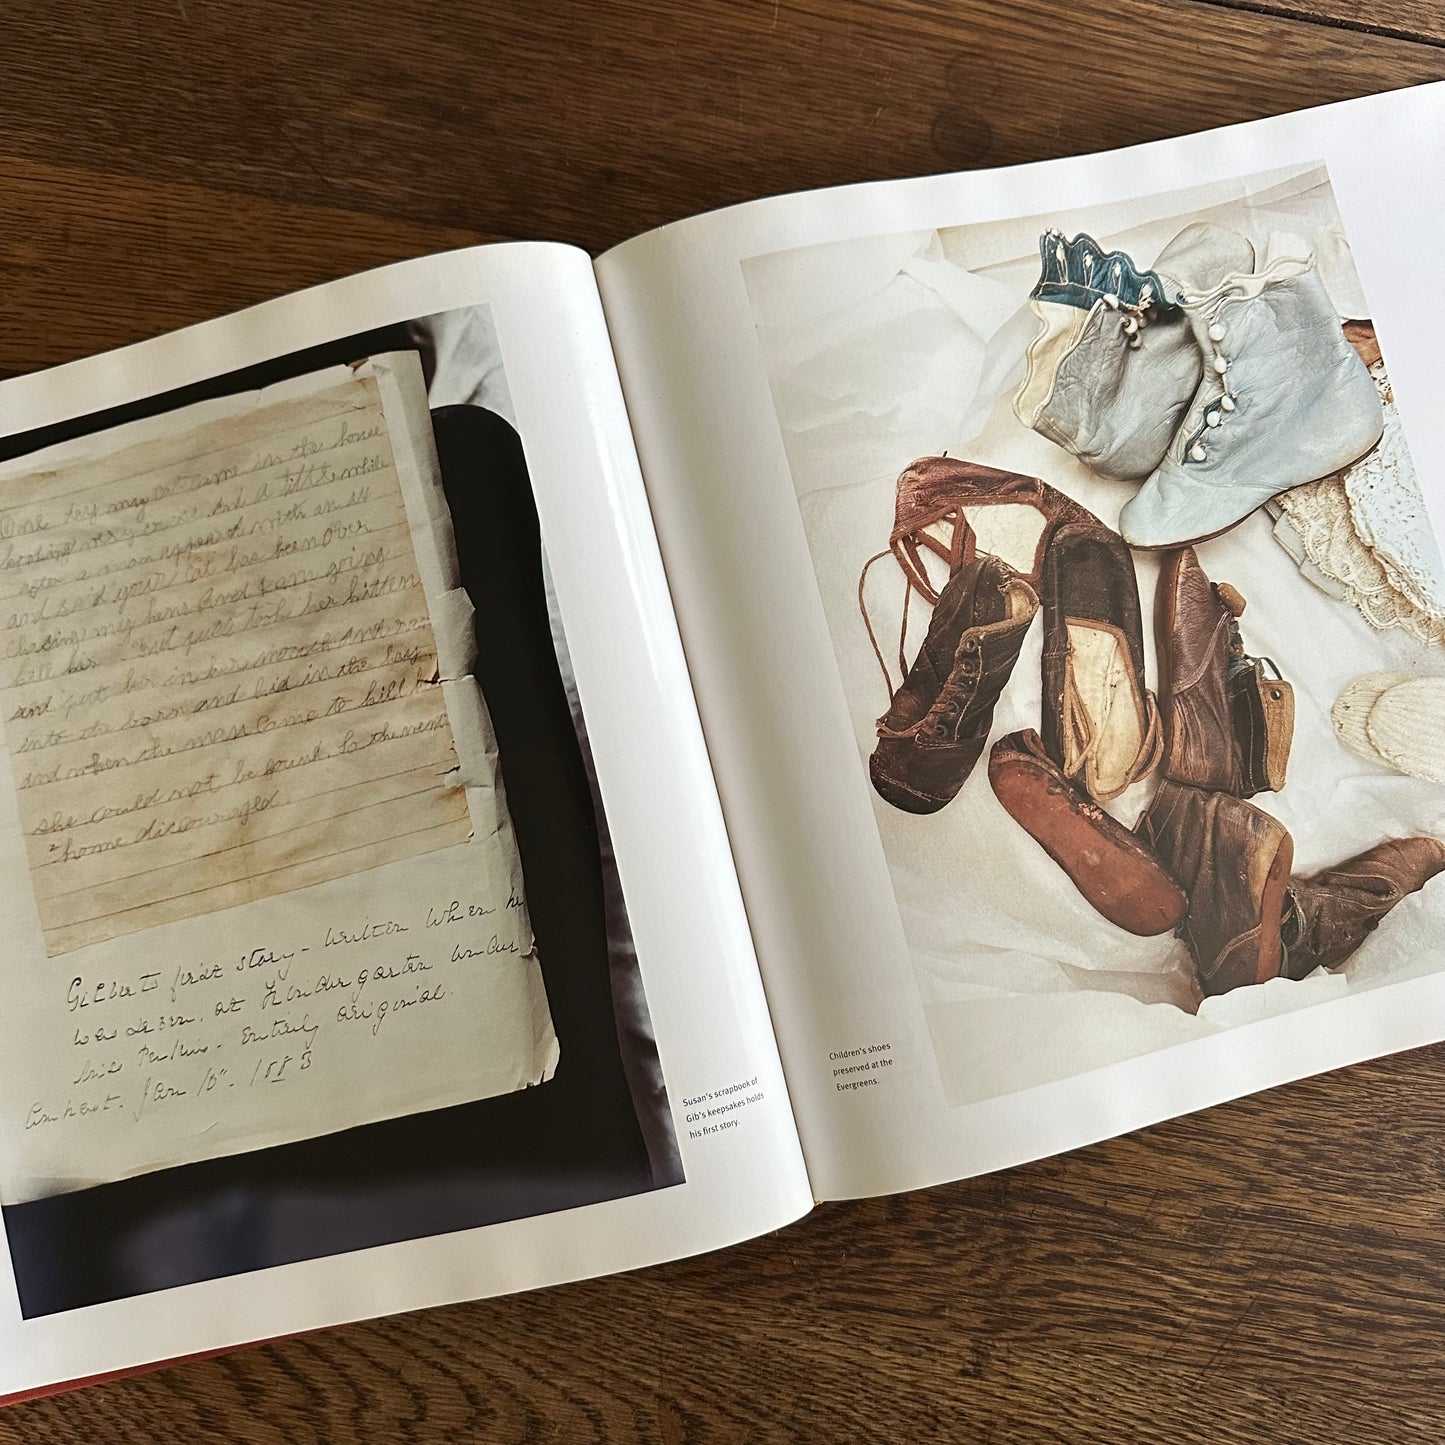 One day my cat came in the house
looking very           And a little while
after a man appeared with an
and said your Cat has been Over
chasing my hens And I am going
kill her. But puss took her kitten
and put      in her mouth And ran
into the barn and hid in the hay
and when the man came to kill her
she could not be found. So the went
home discouraged.
Gilbert's first story - written when he
was seven. at Kindergarten under
Miss Perkins - Entirely original.
Amherst. Jan 15". 1883
Susan's scrapbook of
Gib's keepsakes holds
his first story.
Children's shoes
preserved at the
Evergreens.